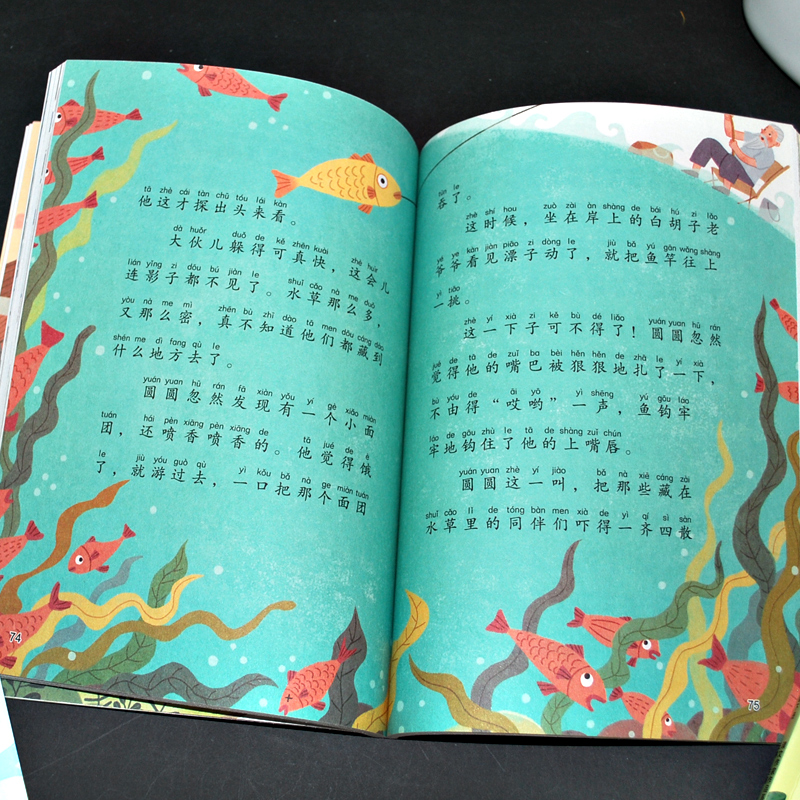 tā zhè cái tàn chū tóu lái kàn
他这才探出头来看。
dà huǒr duǒ de kě zhēn kuài zhè huìr
大伙儿躲得可真快，这会儿
lián yǐng zi dōu bú jiàn le shuǐ cǎo nà me duō
连影子都不见了。水草那么多，
yòu nà me mì zhēn bù zhī dào tā men dōu cáng dào
又那么密，真不知道他们都藏到
shén me dì fang qù le
什么地方去了。
yuán yuan hū rán fā xiàn yǒu yí gè xiǎo miàn
圆圆忽然发现有一个小面
tuán hái pèn xiāng pèn xiāng de tā jué de è
团，还喷香喷香的。他觉得饿
le jiù yóu guò qù yì kǒu bǎ nà ge miàn tuán
了，就游过去，一口把那个面团
74
tūn le
吞了。
zhè shí hou zuò zài àn shàng de bái hú zi lǎo
这时候，坐在岸上的白胡子老
yé ye kàn jiàn piāo zi dòng le jiù bǎ yú gān wǎng shàng
爷爷看见漂子动了，就把鱼竿往上
yì tiǎo
一挑。
zhè yí xià zi kě bù dé liǎo yuán yuan hū rán
这一下子可不得了！圆圆忽然
jué de tā de zuǐ ba bèi hěn hěn de zhā le yí xià
觉得他的嘴巴被狠狠地扎了一下，
bù yóu de āi yō yì shēng yú gōu láo
不由得“哎哟”一声，鱼钩牢
láo de gōu zhù le tā de shàng zuǐ chún
牢地钩住了他的上嘴唇。
yuán yuan zhè yí jiào bǎ nà xiē cáng zài
圆圆这一叫，把那些藏在
shuǐ cǎo lǐ de tóng bàn men xià de yì qí sì sàn
水草里的同伴们吓得一齐四散
75